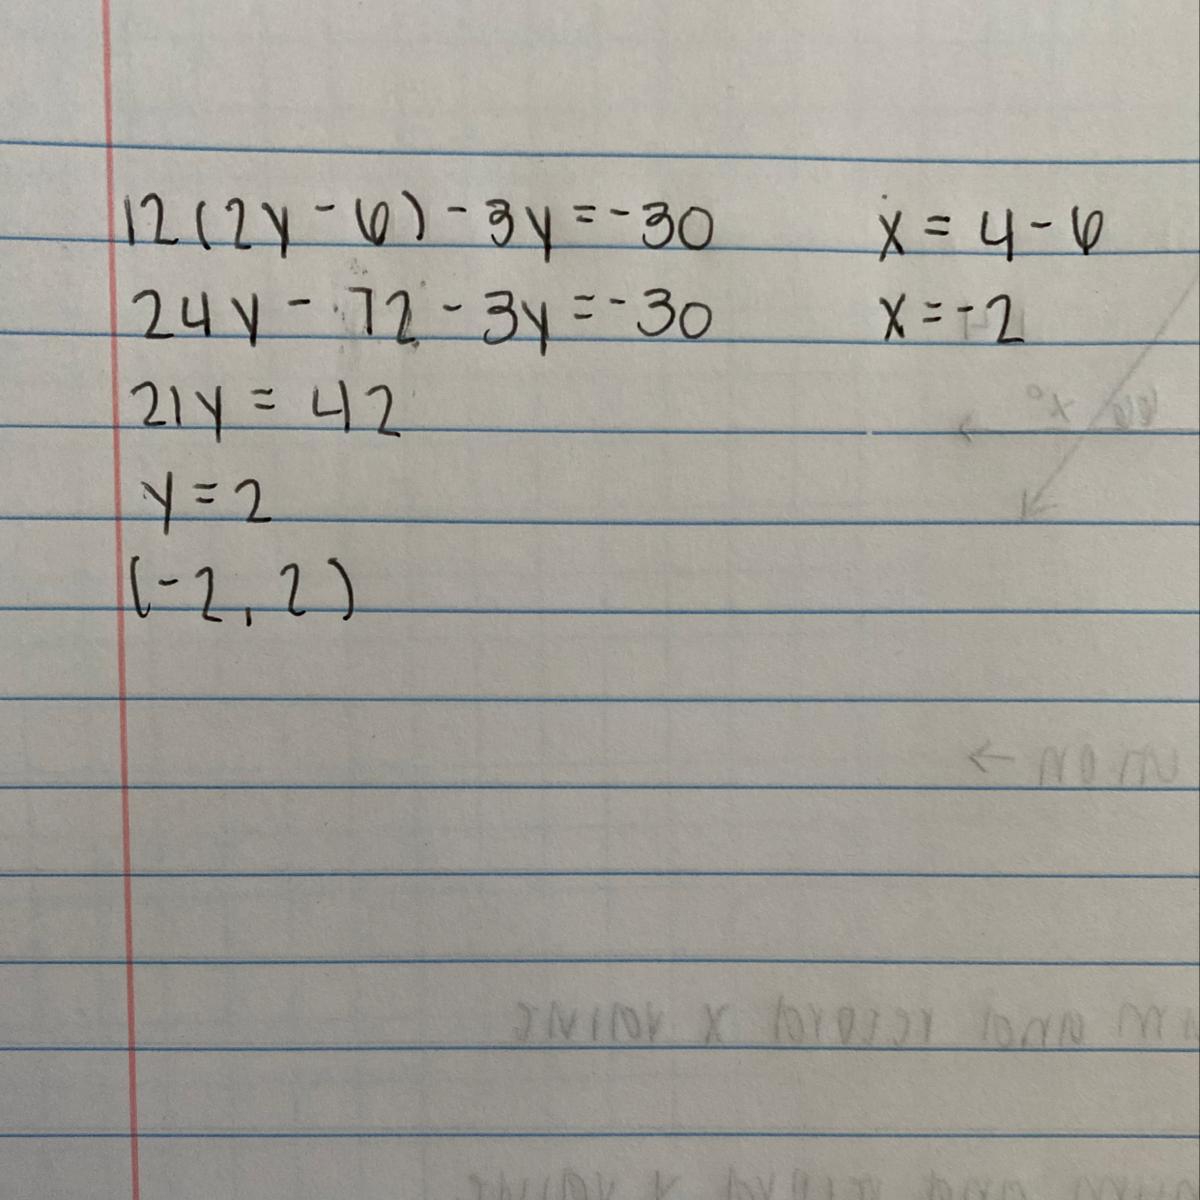 12(2y - 6) - 3y = -30
24y - 72 - 3y = -30
21y = 42
y = 2
(-2, 2)
x = 4 - 6
x = -2